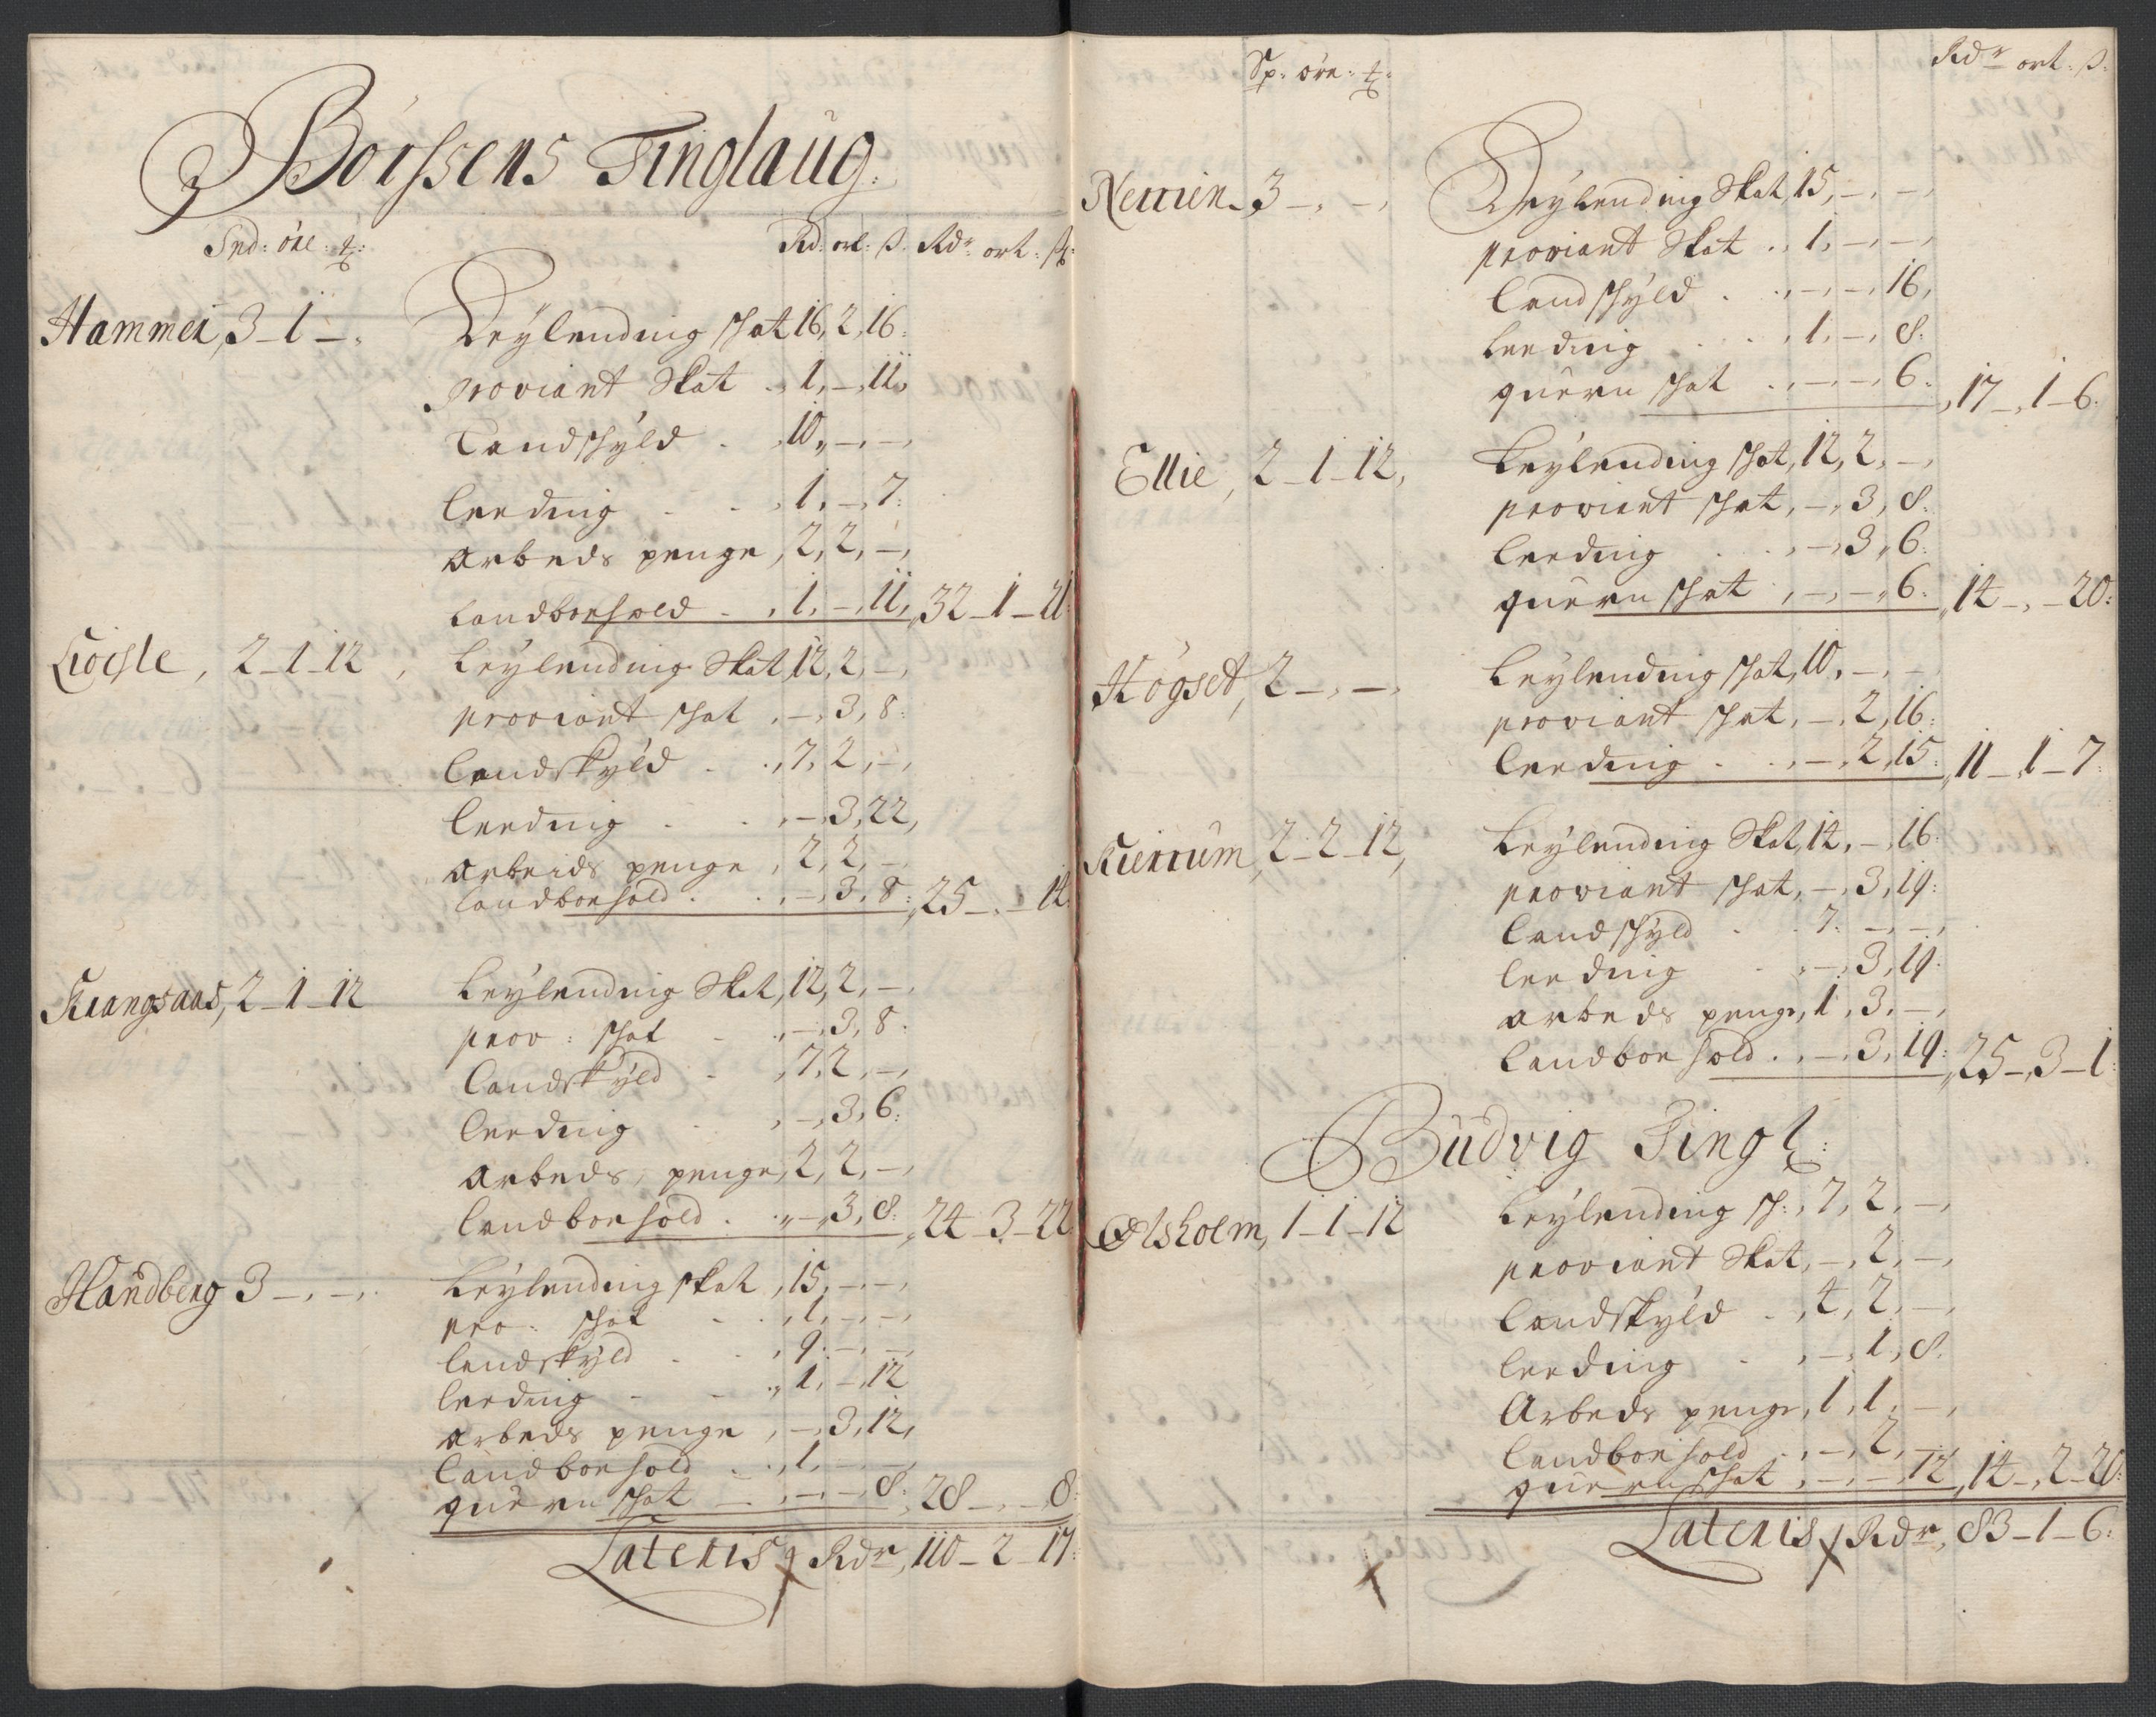 Börssens Tinglaug:
Snd: öre: ꝑ: Rd: ort: ß. Rdr ort: ß:
Hammer, 3-1-. Leylending skat 16, 2, 16:
proviant Skat . 1, -, 11,
Landskyld . 10, -, -,
leeding . . 1, -, 7:
arbeds penge, 2, 2, -,
landboehold . 1, -, 11, 32-1-21:
Liösle, 2-1-12, Leylending Skat 12, 2, -,
proviant skat . -, 3, 8:
Landskyld . 7, 2, -,
leeding . . -, 3, 22,
arbeids penge, 2, 2, -,
landboehold . -, 3, 8: 25-,-14:
Krangsaas, 2-1-12 Leylending Skat, 12, 2, -,
prov: skat . -, 3, 8:
Landskyld . 7, 2, -,
leeding . -, 3, 6:
Arbeds, penge, 2, 2, -,
landboehold . -, 3, 8: 24-3-22
Handberg 3-,-,. Leylending skat, 15, -, -,
pro: skat . . 1, -, -,
landskyld . . 9: -, -,
leeding - - 1, -, 12
arbeds penge, -, 3, 12,
landboehold . 1, -, -
quern skat -, -, 8: 28-,-8:
Lateris Rdr, 110-2-17:
Sp: öre: ꝑ: Rdr ort: ß:
Nerrien 3-,-, Leylending Skat, 15, -, -,
proviant Skat . 1, -, -,
landskyld . . -, -, 16,
leeding . . 1, -, 8:
quern skat . -, -, 6: 17-,1-6:
Ellie, 2-1-12, Leylending skat, 12, 2, -,
proviant skat, -, 3, 8:
leeding . . -, 3, 6:
quern skat . -, -, 6: 14-,-20:
Högset, 2-,-, Leylending skat, 10, -, -
proviant skat, -, 2, 16:
leeding . . -, 2, 15: 11-,1-7:
Kierrum, 2-2-12, Leylending Skat, 14, -, 16:
proviant skat, -, 3, 19:
Landskyld . . 7: -, -,
leeding . -, 3, 19:
arbeds penge, 1, 3, -,
landboehold . -, 3, 19: 25-,3-1:
Budvig Tingl:
Ølsholm, 1-1-12 Leylending sk:, 7, 2, -,
proviant Skat, -, 2, -,
Landskyld . 4, 2, -,
leeding . -, 1, 8:
Arbeds penge, 1, 1, -,
landboehold . -, 2, -,
quern skat, -, -, 12, 14-,2-20:
Lateris Rdr, 83-1-6: